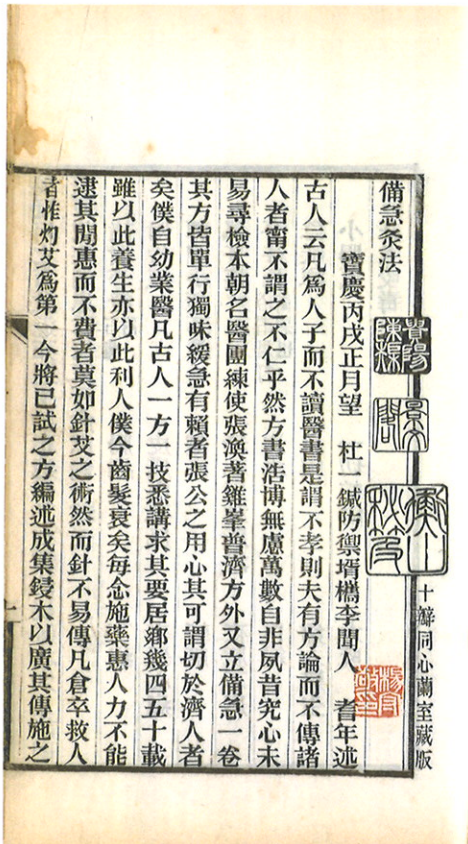 十瓣同心蘭室藏版
備急灸法
寶慶丙戌正月望　杜一鍼防禦壻檇李聞人　耆年述
古人云凡爲人子而不讀醫書是謂不孝則夫有方論而不傳諸
人者甯不謂之不仁乎然方書浩博無慮萬數自非夙昔究心未
易尋檢本朝名醫團練使張渙著雞峯普濟方外又立備急一卷
其方皆單行獨味緩急有賴者張公之用心其可謂切於濟人者
矣僕自幼業醫凡古人一方一技悉講求其要居鄉幾四五十載
雖以此養生亦以此利人僕今齒髮衰矣每念施藥惠人力不能
逮其間惠而不費者莫如針艾之術然而針不易傳凡倉卒救人
者惟灼艾爲第一今將已試之方編述成集鋟木以廣其傳施之